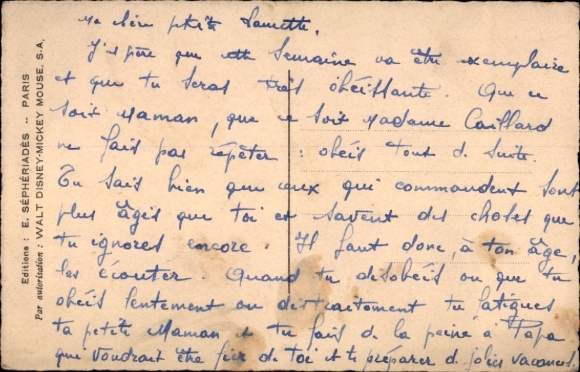 Ma chère ptite
J'espère que cette semaine va être exemplaire
et que tu seras très obéissante. Que ce
soit Maman, que ce soit Madame Caillard
ne fais pas répéter : obéis tout d. suite.
Tu sais bien que ceux qui commandent sont
plus âgés que toi et savent des choses que
tu ignores encore. Il faut donc, à ton âge,
les écouter. Quand tu désobéis ou que tu
obéis lentement ou distraitement tu fatigues
ta petite Maman et tu fais de la peine à Papa
qui voudrait être fier de toi et te préparer de jolies vacances.
Editions : E. SÉPHÉRIADÈS -- PARIS
Par autorisation : WALT DISNEY-MICKEY MOUSE. S.A.